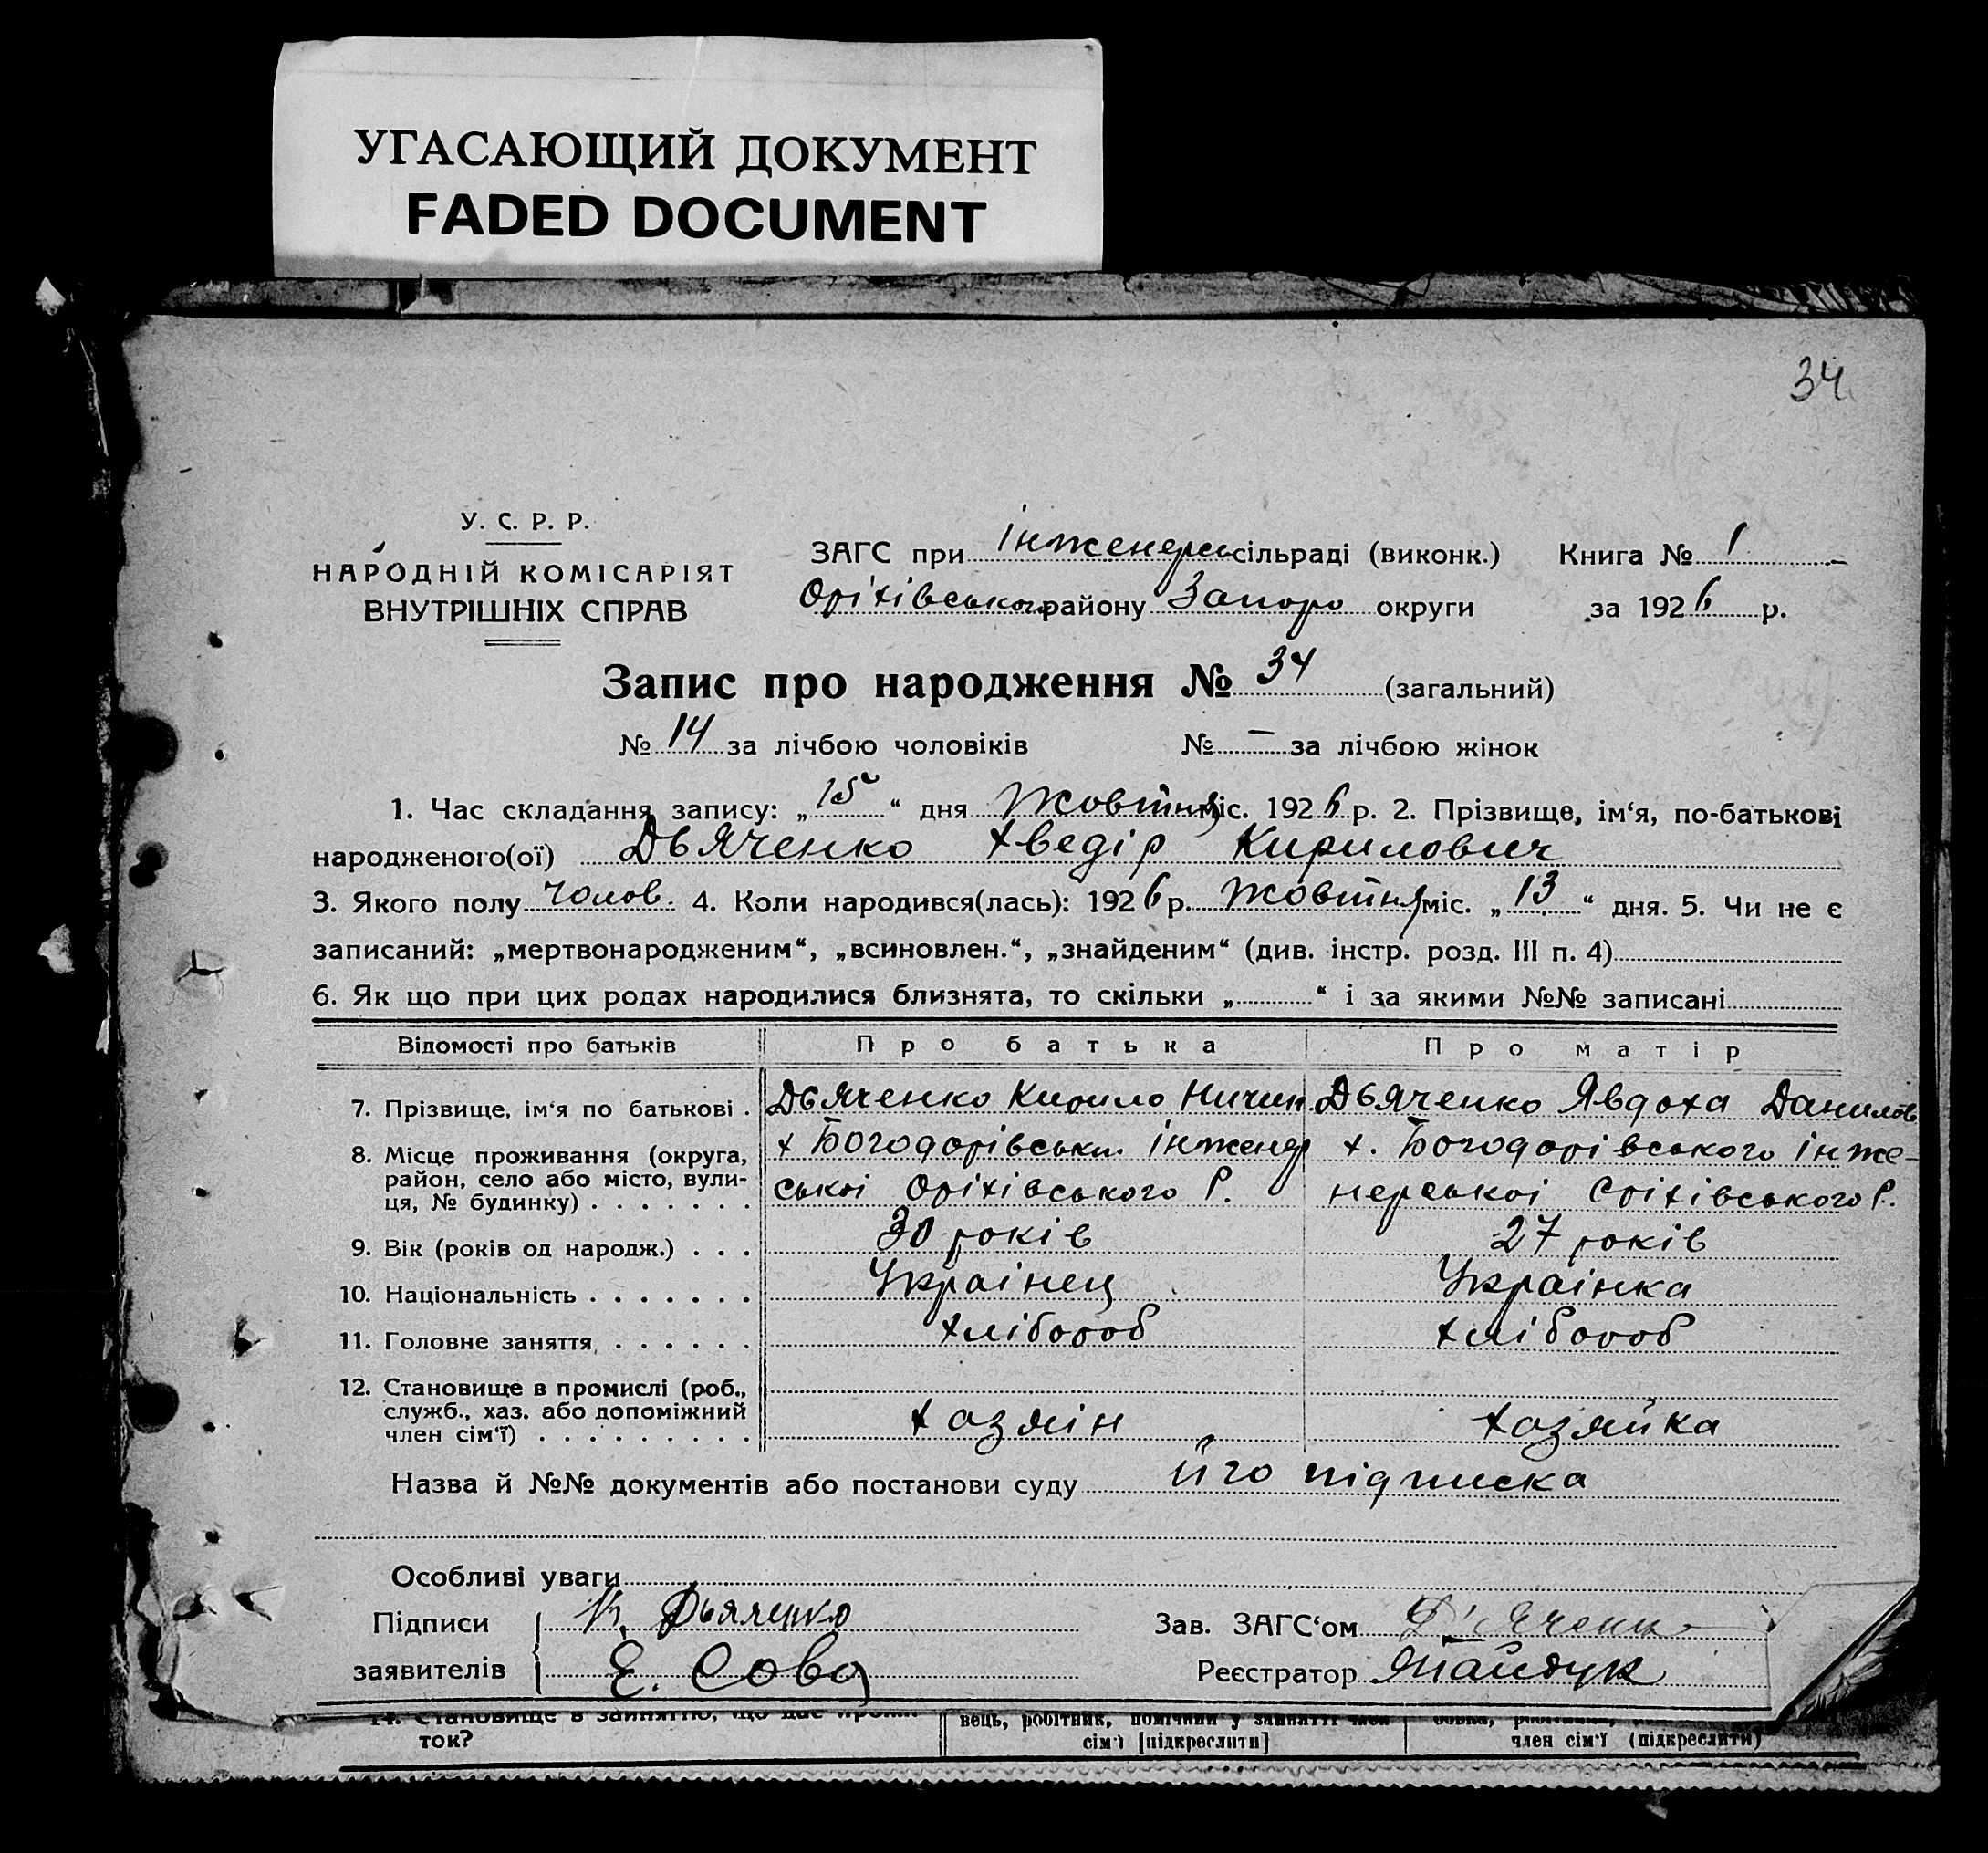 УГАСАЮЩИЙ ДОКУМЕНТ
FADED DOCUMENT
34
У. С. Р. Р.
НАРОДНІЙ КОМІСАРІЯТ
ВНУТРІШНІХ СПРАВ
ЗАГС при Інженерсь сільраді (виконк.) Книга № 1
Оріхівського району Запоро округи за 1926 р.
Запис про народження № 34 (загальний)
№ 14 за лічбою чоловіків № — за лічбою жінок
1. Час складання запису: „15“ дня Жовтня міс. 1926 р. 2. Прізвище, ім‘я, по-батькові
народженого(ої) Дьяченко Хведір Кирилович
3. Якого полу Чолов. 4. Коли народився(лась): 1926 р. Жовтня міс. „13“ дня. 5. Чи не є
записаний: „мертвонародженим“, „всиновлен.“, „знайденим“ (див. інстр. розд. III п. 4)
6. Як що при цих родах народилися близнята, то скільки „ “ і за якими №№ записані
Відомості про батьків Про батька Про матір
7. Прізвище, ім‘я по батькові . Дьяченко Кирило Ничип Дьяченко Явдоха Данилов
8. Місце проживання (округа, район, село або місто, вулиця, № будинку) . . . . . . . х Богодорівськ. Інженер х. Богодорівського Інже-
ської Оріхівського Р. нерської Оріхівського Р.
9. Вік (років од народж.) . . . 30 років 27 років
10. Національність . . . . . . . Украінец Украінка
11. Головне заняття . . . . . . хлібороб хлібороб
12. Становище в промислі (роб.,
служб., хаз. або допоміжний
член сім‘ї) . . . . . . . . . хазяін хазяйка
Назва й №№ документів або постанови суду Його підписка
Особливі уваги
Підписи К. Дьяченко Зав. ЗАГС‘ом
заявителів Е. Сова Реєстратор
ток?
сім‘ї [підкреслити]
член сім‘ї (підкреслити)